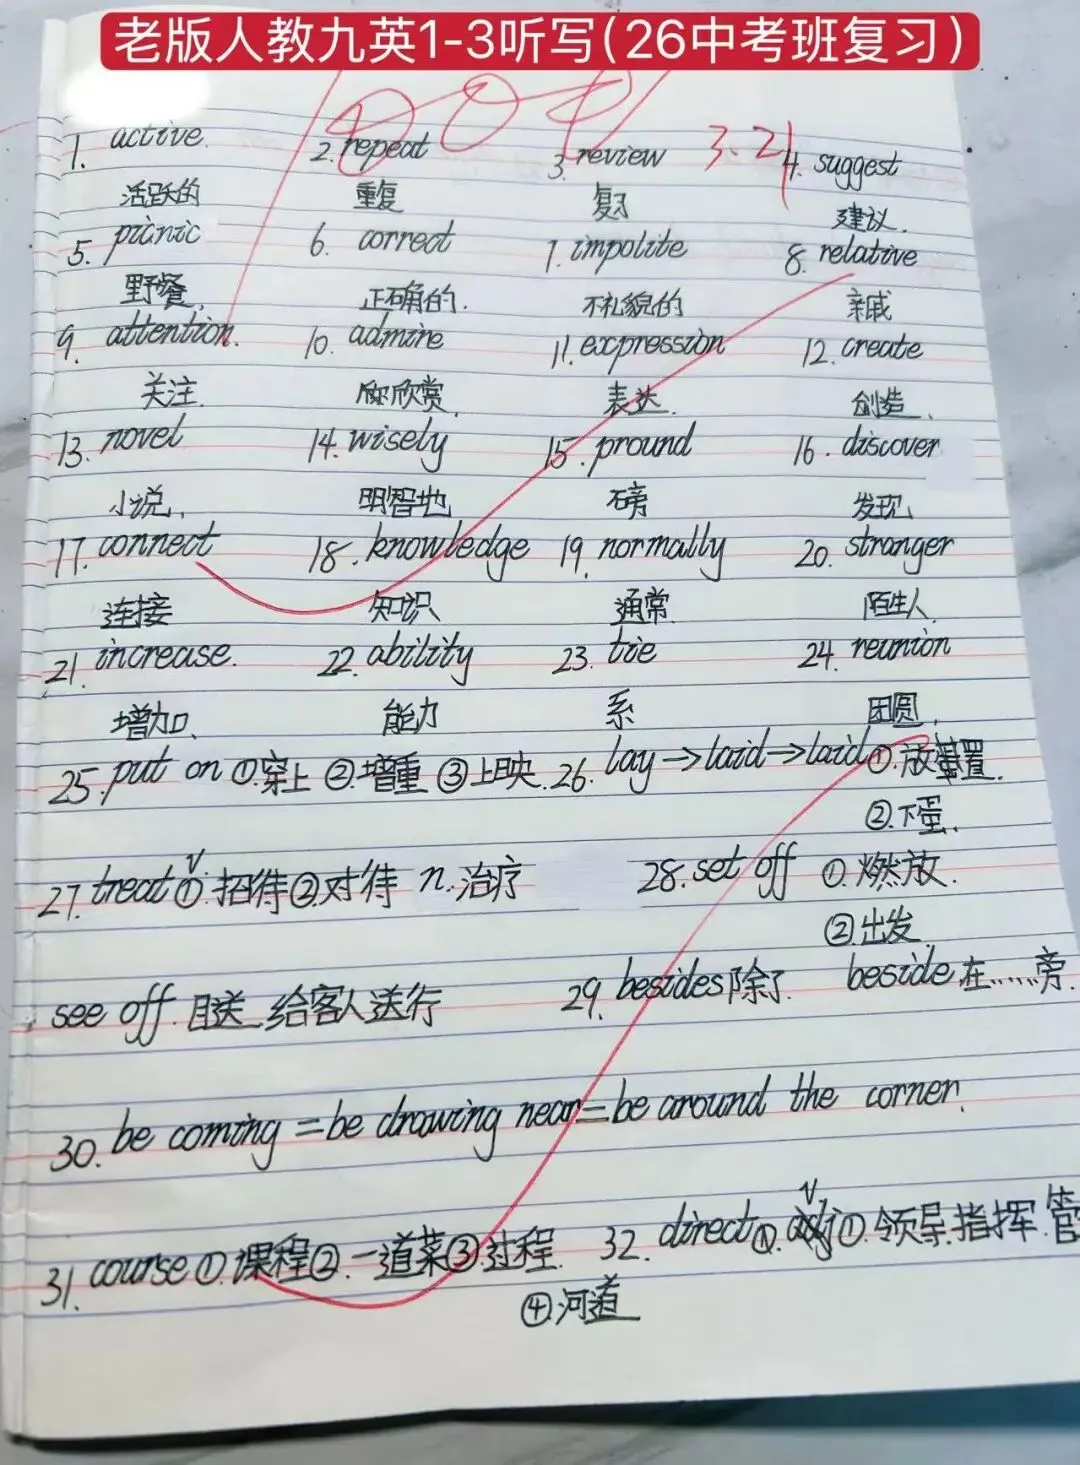 老版人教九英1-3听写(26中考班复习)
100分 3.21
1. active. 2. repeat 3. review 4. suggest
活跃的 重复 复习 建议.
5. picnic 6. correct 7. impolite 8. relative
野餐. 正确的. 不礼貌的 亲戚
9. attention. 10. admire 11. expression 12. create
关注. 欣赏. 表达. 创造.
13. novel 14. wisely 15. pround 16. discover
小说. 明智地 磅 发现
17. connect 18. knowledge 19. normally 20. stranger
连接 知识 通常 陌生人
21. increase. 22. ability 23. tie 24. reunion
增加. 能力 系 团圆.
25. put on ①穿上 ②.增重 ③上映. 26. lay→laid→laid①.放置.
②.下蛋.
27. treat v ①.招待②.对待 n.治疗 28. set off ①.燃放.
②.出发
see off.目送 给客人送行 29. besides除了. beside在……旁.
30. be coming =be drawing near=be around the corner.
31. course①.课程②.一道菜③.过程. 32. direct v ①.领导.指挥.管
④.河道